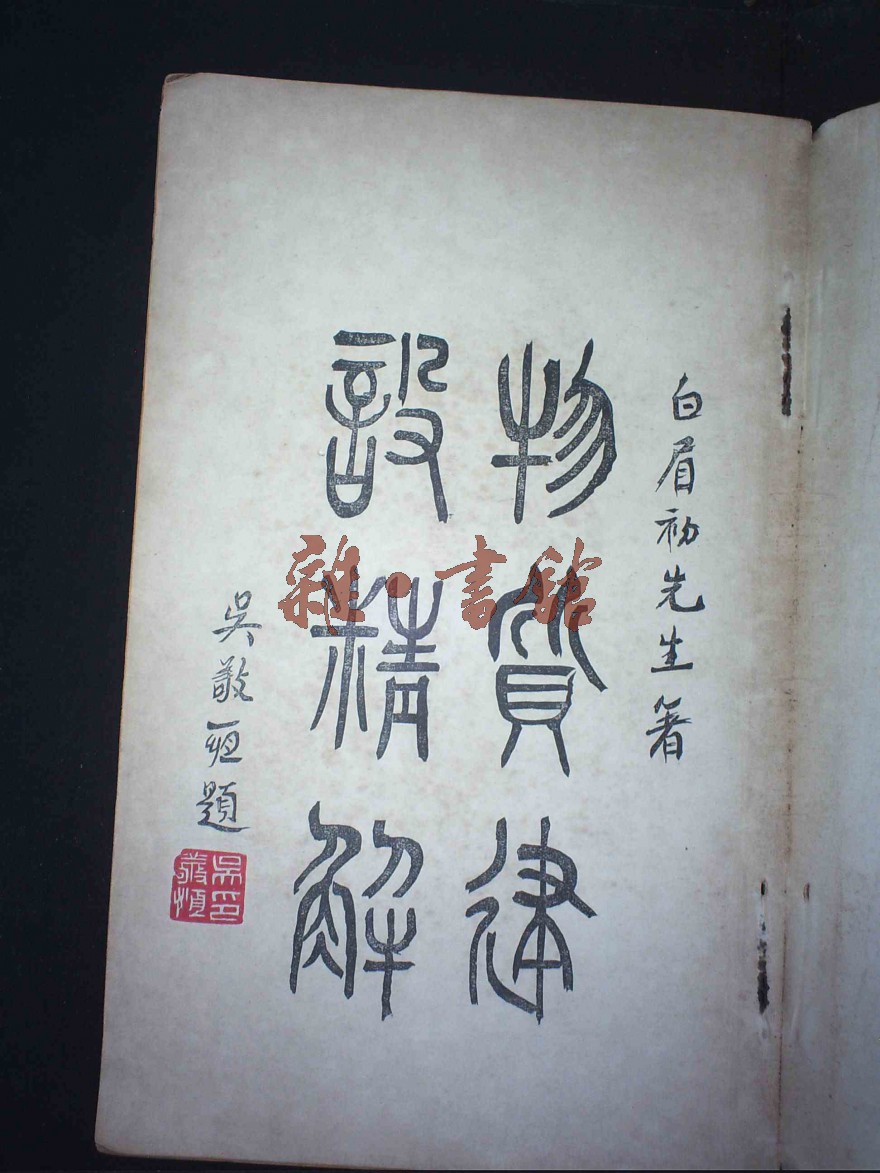 白眉初先生著
物質建
設精解
吳敬恆題
吳敬恆印
雜·書館